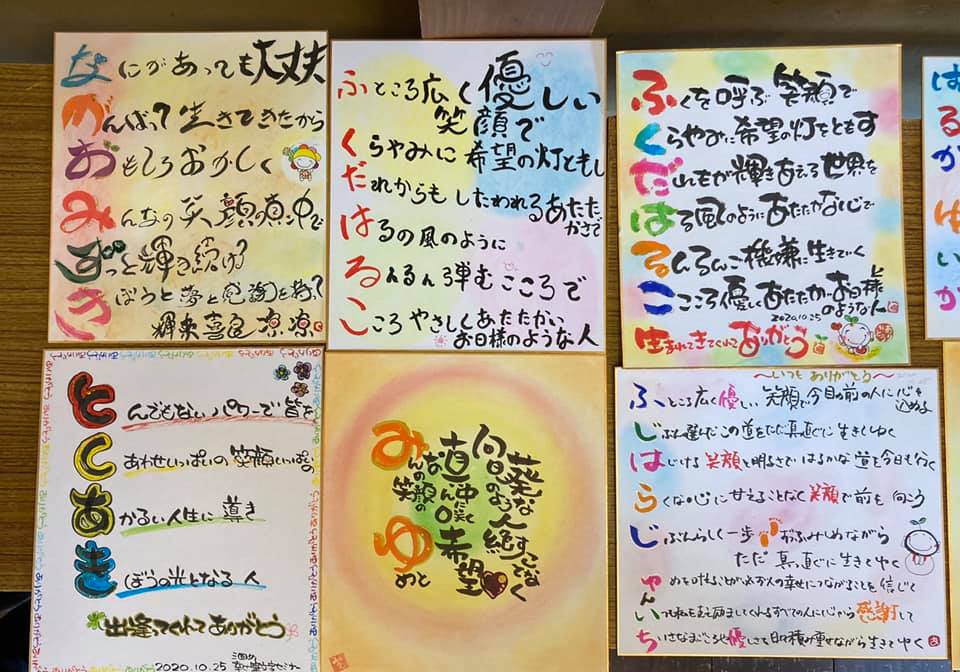 なにがあっても大丈夫
がんばって生きてきたから
おもしろおかしく
みんなの笑顔の真ん中で
ずっと輝き続けて
きぼうと夢と感謝を持って
輝来喜良 凉凉
ふところ広く優しい
笑顔で
くらやみに希望の灯ともし
だれからもしたわれるあたた
かさで
はるの風のように
るんるん弾むこころで
こころやさしくあたたかい
お日様のような人
ふくを呼ぶ笑顔で
くらやみに希望の灯をともす
だれもが輝きあえる世界を
はる風のようにあたたかな心で
るんるんご機嫌に生きていく
こころ優しいあたたかいお日様
のような人
2020.10.25
生まれてきてくれてありがとう
は
る
か
ゆ
い
か
とんでもないパワーで皆を
しあわせいっぱいの笑顔いっぱいの
あかるい人生に導き
きぼうの光となる人
出逢ってくれてありがとう
2020.10.25
みんなの笑顔の
真ん中に咲く
向日葵のような人
ゆめと
希望
絶やすことなく
～いつもありがとう～
ふところ広く優しい笑顔で今目の前の人に心を
込める
じぶんで選んだこの道をただ真直ぐに生きてゆく
はじける笑顔と明るさではるかな道を今日も行く
らくな心に甘えることなく笑顔で前を向こう
じぶんらしく一歩おふみしめながら
ただ真っ直ぐに生きてゆく
ゆめを叶えることが万人の幸せにつながることを信じて
いつも私を支え励ましてくれるすべての人に心から感謝して
ちいさなまごころや優しさを日々積み重ねながら生きてゆく